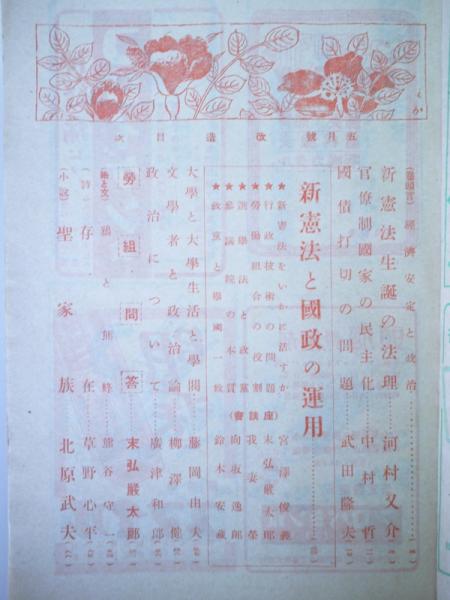 五月號 改造 目次
(卷頭言) 經濟安定と政治
新憲法生誕の法理 河村又介
官僚制國家の民主化 中村哲
國債打切の問題 武田隆夫
新憲法と國政の運用
★新憲法をいかに活すか
★行政技術の問題
★勞働組合の役割
★選擧法と政黨
★參議院の本質
★政黨と擧國一致
(座談會)
宮澤俊義
末弘嚴太郎
我妻榮
向坂逸郎
鈴木安藏
大學と大學生活と學問 藤岡由夫
文學者と政治論 柳澤健
政治について 廣津和郎
勞組問答 末弘嚴太郎
(繪と文) 鵜と 熊谷守一
(詩) 存在 草野心平
(小說) 聖家族 北原武夫